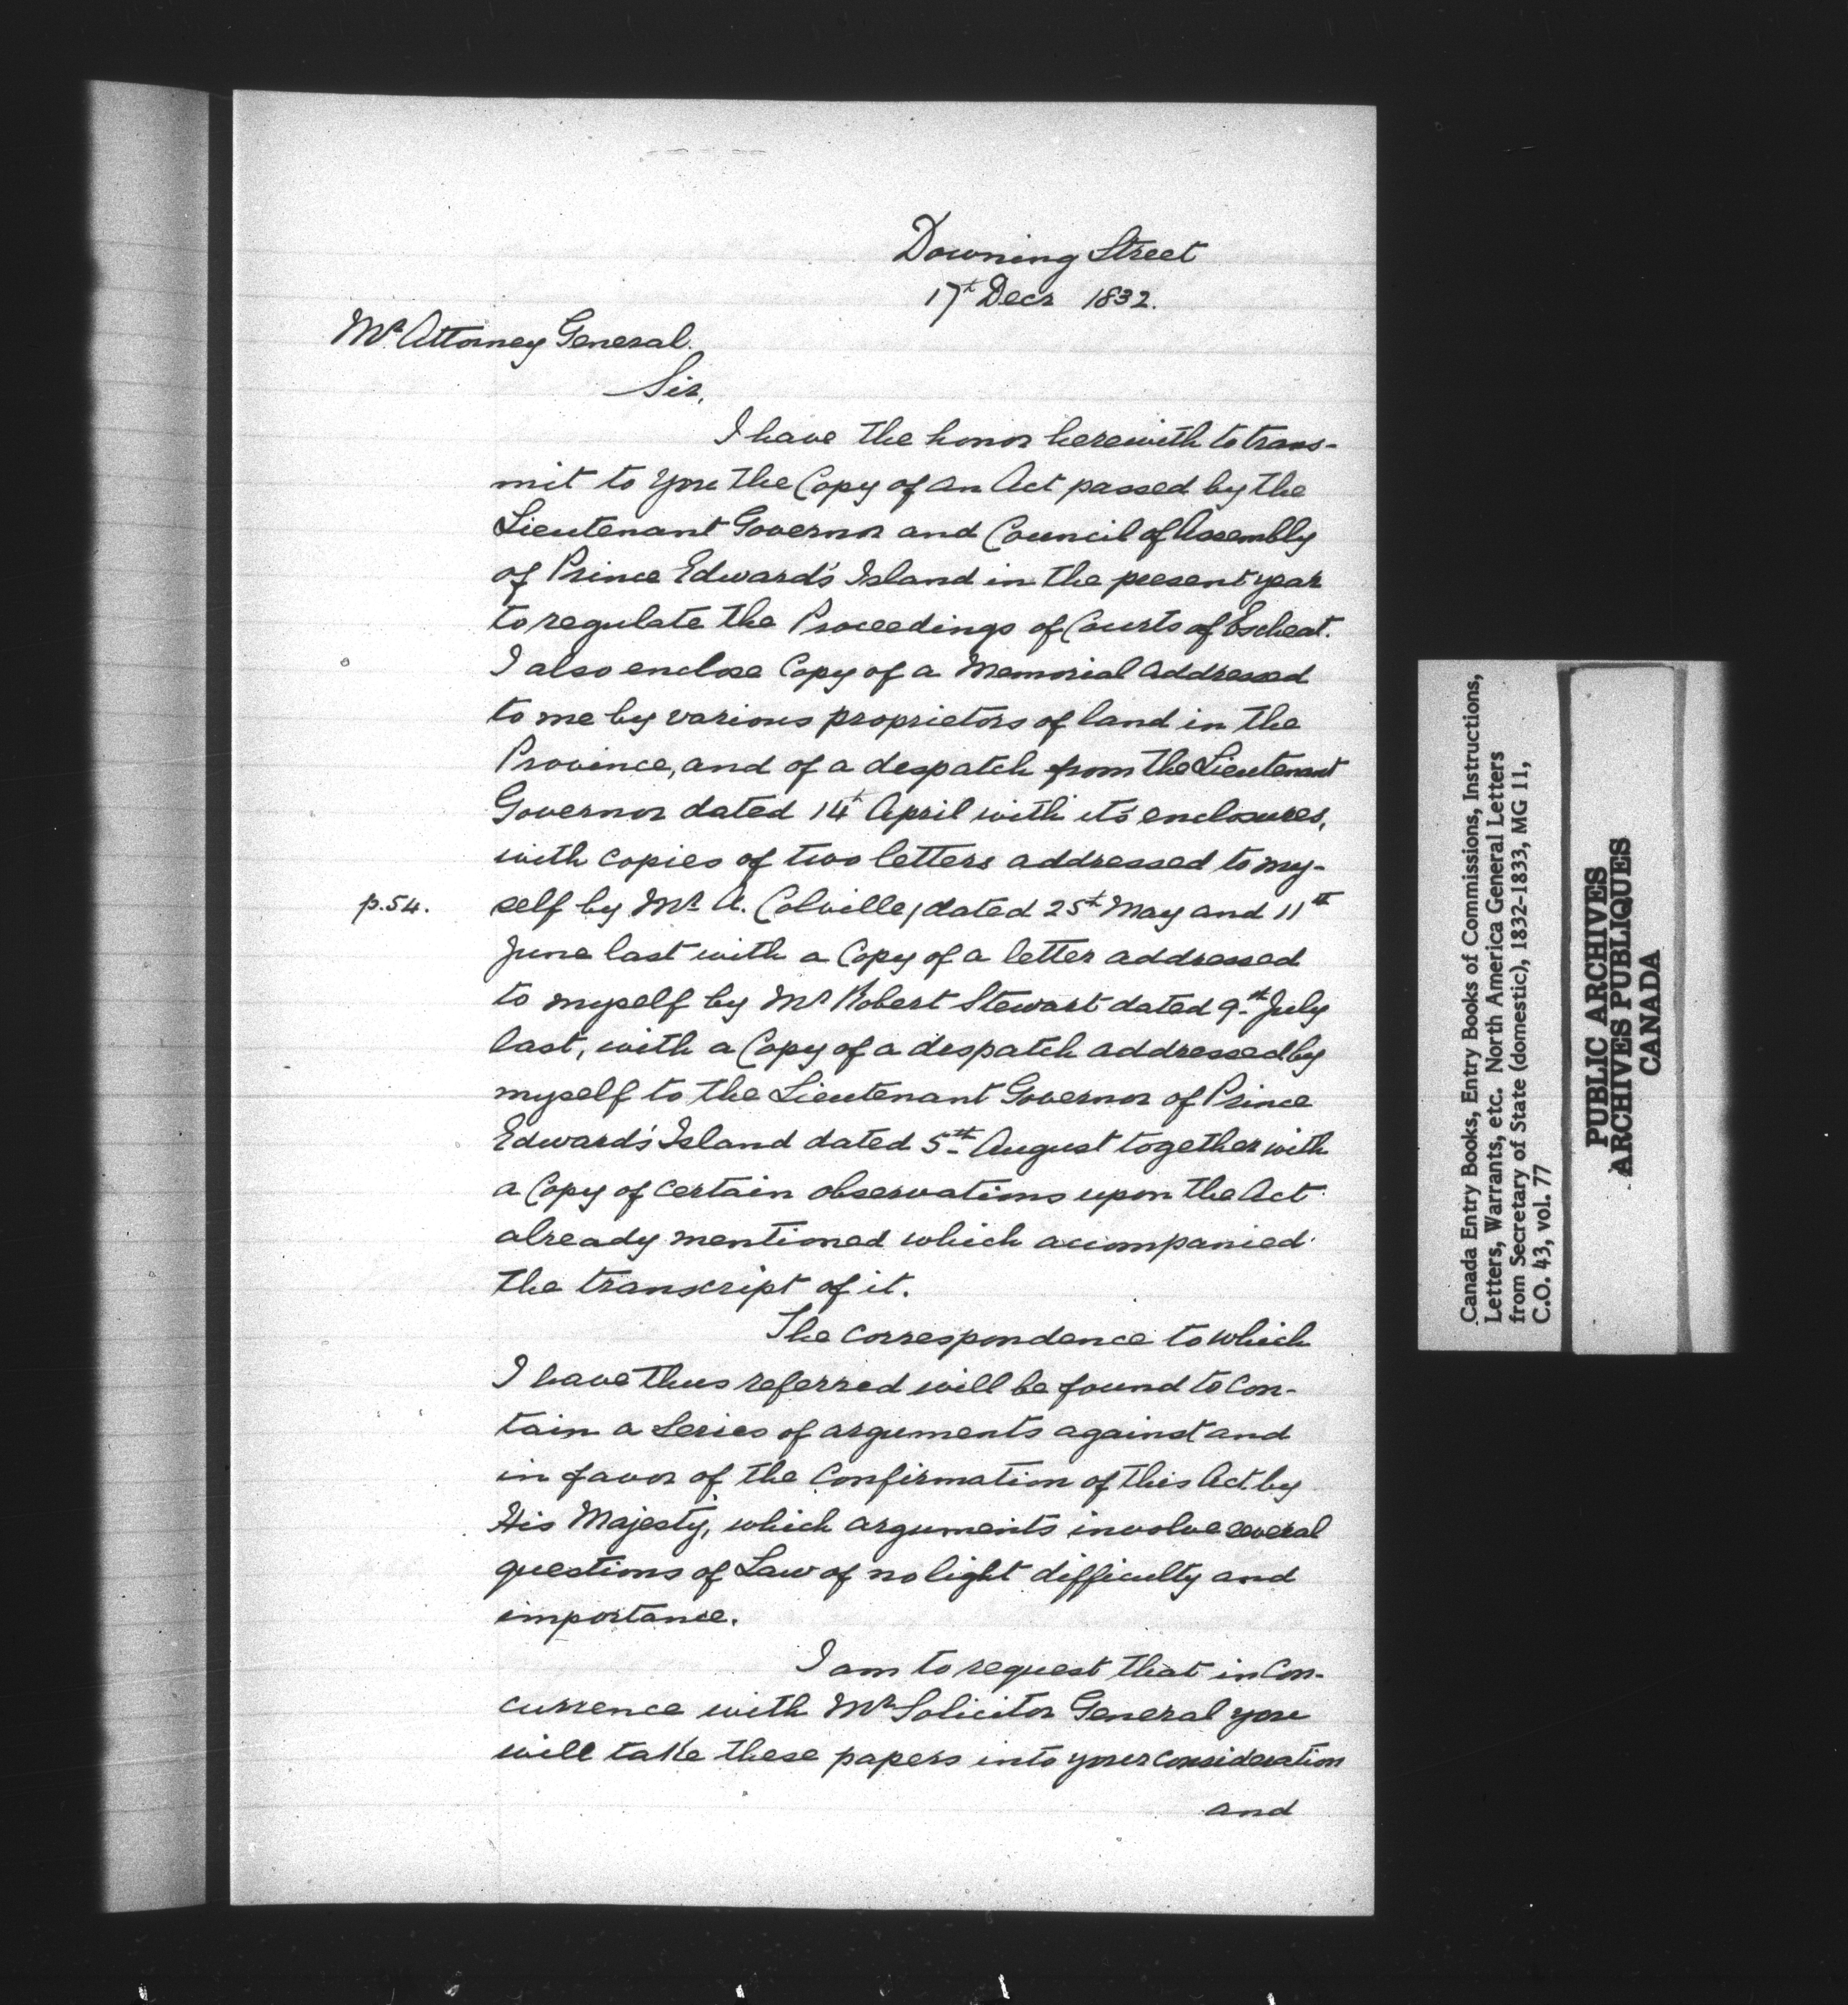 Downing Street
17th Decr 1832.
Mr Attorney General.
Sir,
I have the honor herewith to trans-
mit to you the Copy of an Act passed by the
Lieutenant Governor and Council of Assembly
of Prince Edward's Island in the present year
to regulate the Proceedings of Courts of Escheat.
I also enclose Copy of a Memorial addressed
to me by various proprietors of land in the
Province, and of a despatch from the Lieutenant
Governor dated 14th April with it's enclosures,
with copies of two letters addressed to my-
p.54.
self by Mr A. Colville, dated 25th May and 11th
June last with a Copy of a letter addressed
to myself by Mr Robert Stewart dated 9th July
last, with a Copy of a despatch addressed by
myself to the Lieutenant Governor of Prince
Edward's Island dated 5th August together with
a Copy of certain observations upon the Act
already mentioned which accompanied
the transcript of it.
The correspondence to which
I have thus referred will be found to con-
tain a Series of arguments against and
in favor of the Confirmation of this Act by
His Majesty, which arguments involve several
questions of Law of no light difficulty and
importance.
I am to request that in Con-
currence with Mr Solicitor General you
will take these papers into your consideration
and
Canada Entry Books, Entry Books of Commissions, Instructions,
Letters, Warrants, etc. North America General Letters
from Secretary of State (domestic), 1832-1833, MG 11,
C.O. 43, vol. 77
PUBLIC ARCHIVES
ARCHIVES PUBLIQUES
CANADA